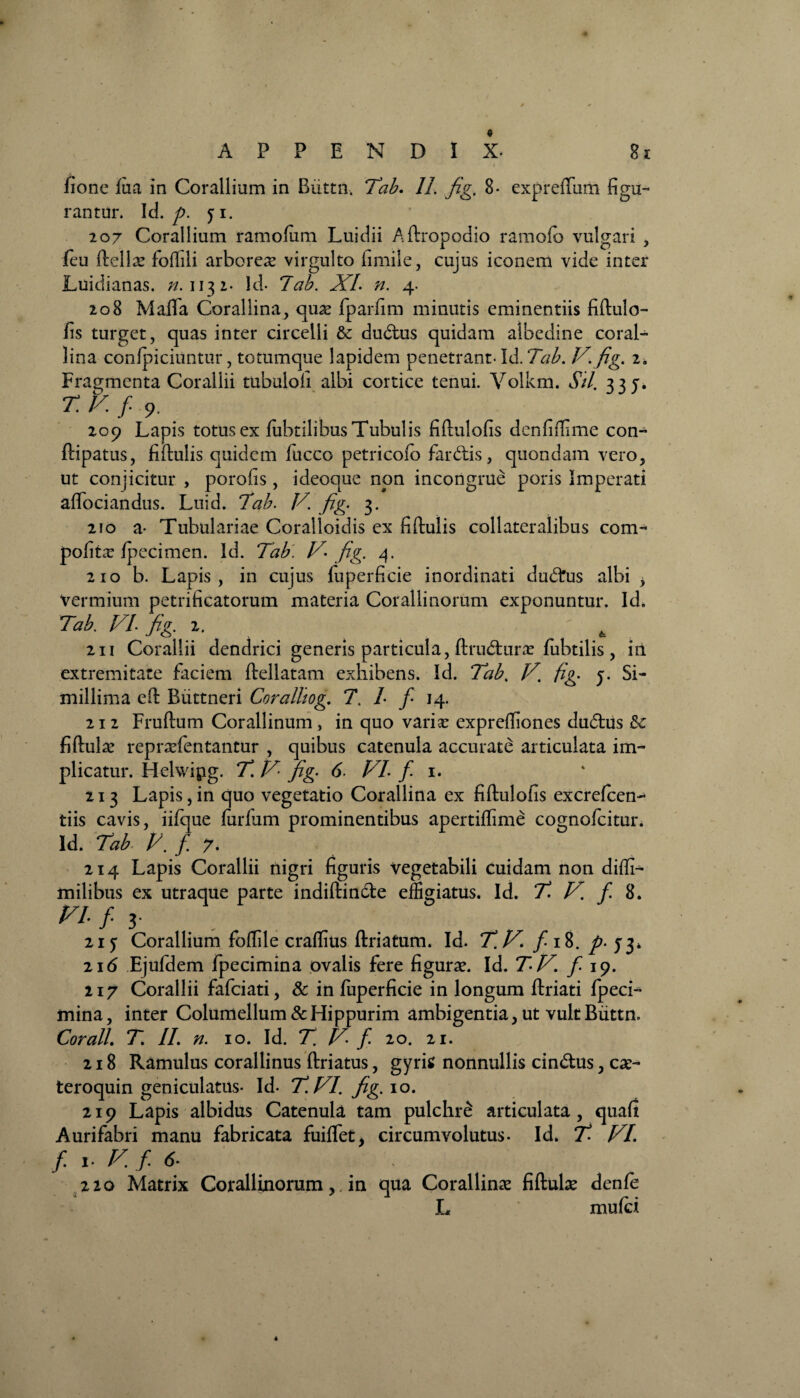 APPENDIX. 81
ſione ſua in Corallium in Büttn. Tab. II. fig. 8. expreſſum figu-
rantur. Id. p. 51.
207 Corallium ramoſum Luidii Aſtropodio ramoſo vulgari ,
ſeu ſtellæ foſſili arboreæ virgulto ſimile, cujus iconem vide inter
Luidianas. n. 1132. Id. Tab. XI. n. 4.
208 Maſſa Corallina, quæ ſparſim minutis eminentiis fiſtulo-
ſis turget, quas inter circelli & ductus quidam albedine coral-
lina conſpiciuntur, totumque lapidem penetrant. Id. Tab. V. fig. 2.
Fragmenta Corallii tubuloſi albi cortice tenui. Volkm. Sil. 335.
T. V. f. 9.
209 Lapis totus ex ſubtilibus Tubulis fiſtuloſis denſiſſime con-
ſtipatus, fiſtulis quidem ſucco petricoſo farctis, quondam vero,
ut conjicitur , poroſis , ideoque non incongruè poris Imperati
aſſociandus. Luid. Tab. V. fig. 3.
210 a. Tubulariae Coralloidis ex fiſtulis collateralibus com-
poſitæ ſpecimen. Id. Tab. V. fig. 4.
210 b. Lapis , in cujus ſuperficie inordinati ductus albi ,
vermium petrificatorum materia Corallinorum exponuntur. Id.
Tab. VI. fig. 2.
211 Corallii dendrici generis particula, ſtructuræ ſubtilis, in
extremitate faciem ſtellatam exhibens. Id. Tab. V. fig. 5. Si-
millima eſt Büttneri Coralliog. T. I. f. 14.
212 Fruſtum Corallinum, in quo variæ expreſſiones ductus &
fiſtulæ repræſentantur , quibus catenula accuratè articulata im-
plicatur. Helwipg. T. V. fig. 6. VI. f. 1.
213 Lapis, in quo vegetatio Corallina ex fiſtuloſis excreſcen-
tiis cavis, iiſque furſum prominentibus apertiſſimè cognoſcitur.
Id. Tab V. f. 7.
214 Lapis Corallii nigri figuris vegetabili cuidam non diſſi-
milibus ex utraque parte indiſtincte effigiatus. Id. T. V. f. 8.
VI. f. 3.
215 Corallium foſſile craſſius ſtriatum. Id. T. V. f. 18. p. 53.
216 Ejuſdem ſpecimina ovalis fere figuræ. Id. T. V. f. 19.
217 Corallii faſciati, & in ſuperficie in longum ſtriati ſpeci-
mina, inter Columellum & Hippurim ambigentia, ut vult Büttn.
Corall. T. II. n. 10. Id. T. V. f. 20. 21.
218 Ramulus corallinus ſtriatus, gyris nonnullis cinctus, cæ-
teroquin geniculatus. Id. T. VI. fig. 10.
219 Lapis albidus Catenulâ tam pulchrè articulata, quaſi
Aurifabri manu fabricata fuiſſet, circumvolutus. Id. T. VI.
f. 1. V. f. 6.
220 Matrix Corallinorum, in qua Corallinæ fiſtulæ denſe
L muſci